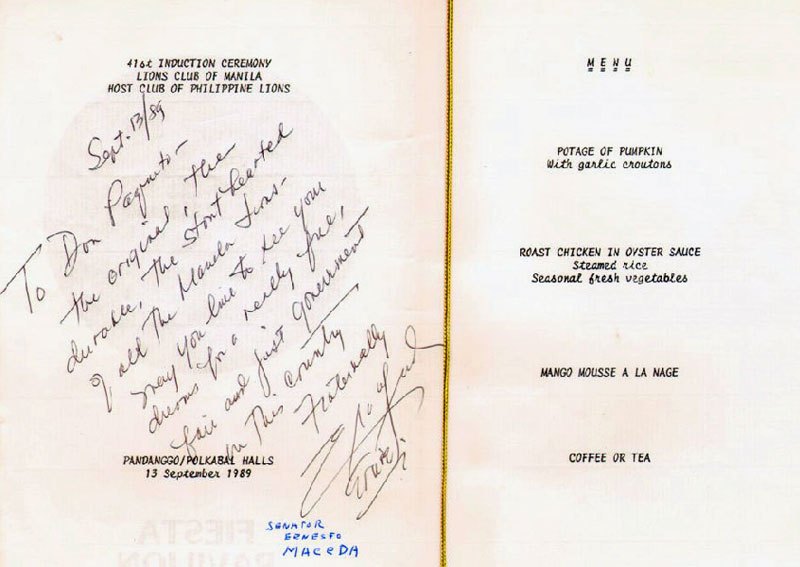 41st INDUCTION CEREMONY
LIONS CLUB OF MANILA
HOST CLUB OF PHILIPPINE LIONS
Sept. 13/89
To Don Paquito-
the original, the
durable, the stout hearted
of all the Manila Lions-
may you live to see your
dreams for a really free,
fair and just government
in this country
Fraternally
PANDANGGO/POLKABAL HALLS
13 September 1989
SENATOR
ERNESTO
MACEDA
FIESTA
PAVILION
MENU
POTAGE OF PUMPKIN
With garlic croutons
ROAST CHICKEN IN OYSTER SAUCE
Steamed rice
Seasonal fresh vegetables
MANGO MOUSSE A LA NAGE
COFFEE OR TEA